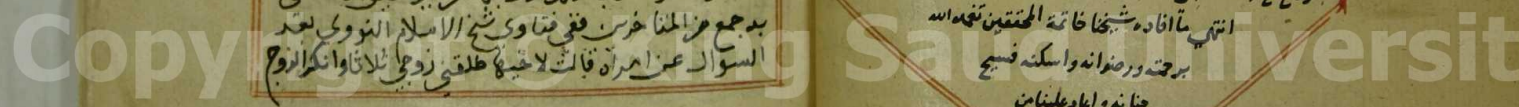 به جمع من المتاخرين ففي فتاوى شيخ الاسلام النووي بعد
السوال عن امراة قالت لاخيها طلقني زوجي ثلاثا وانكر الزوج
انتهى ما افاده شيخنا خاتمة المحققين تغمده الله
برحمته ورضوانه واسكنه فسيح
جنانه واعاد علينا من